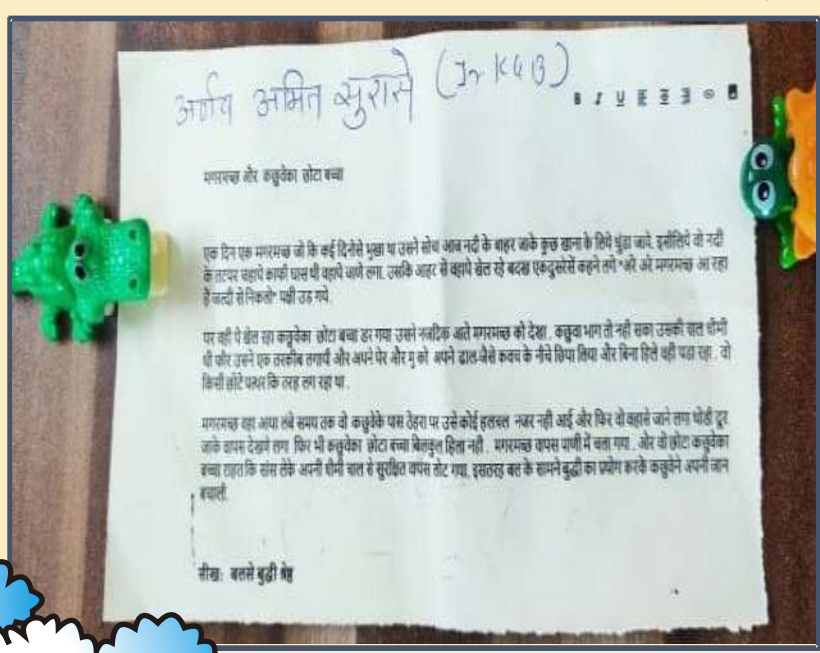 अर्णव अमित सुरासे (Jr KG B)
B I U
मगरमच्छ और कछुवेका छोटा बच्चा
एक दिन एक मगरमच्छ जो कि कई दिनोसे भुखा था उसने सोच आज नदी के बाहर जाके कुछ खाना के लिये धुंडा जाये. इसीलिये वो नदी
के तटपर जहापे काफी घास थी वहापे जाणे लगा. उसकि आहट से वहापे खेल रहे बदख एकदुसरेसें कहने लगे "अरे अरे मगरमच्छ आ रहा
है जल्दी से निकलो" पक्षी उड गये.
पर वही पे खेल रहा कछुवेका छोटा बच्चा डर गया उसने नजदिक आते मगरमच्छ को देखा . कछुवा भाग तो नही सका उसकी चाल धीमी
थी फीर उसने एक तरकीब लगायी और अपने पेर और मू को अपने ढाल-जैसे कवच के नीचे छिपा लिया और बिना हिले वही पडा रहा . वो
किसी छोटे पत्थर कि तरह लग रहा था .
मगरमच्छ वहा आया लंबे समय तक वो कछुवेके पास ठेहरा पर उसे कोई हलचल नजर नही आई और फिर वो वहासे जाने लगा थोडी दूर
जाके वापस देखणे लगा फिर भी कछुवेका छोटा बच्चा बिलकुल हिला नही . मगरमच्छ वापस पाणी में चला गया . और वो छोटा कछुवेका
बच्चा राहत कि सांस लेके अपनी धीमी चाल से सुरक्षित वापस लौट गया. इसतरह बल के सामने बुद्धी का प्रयोग करके कछुवेने अपनी जान
बचाली.
सीख: बलसे बुद्धी श्रेष्ठ